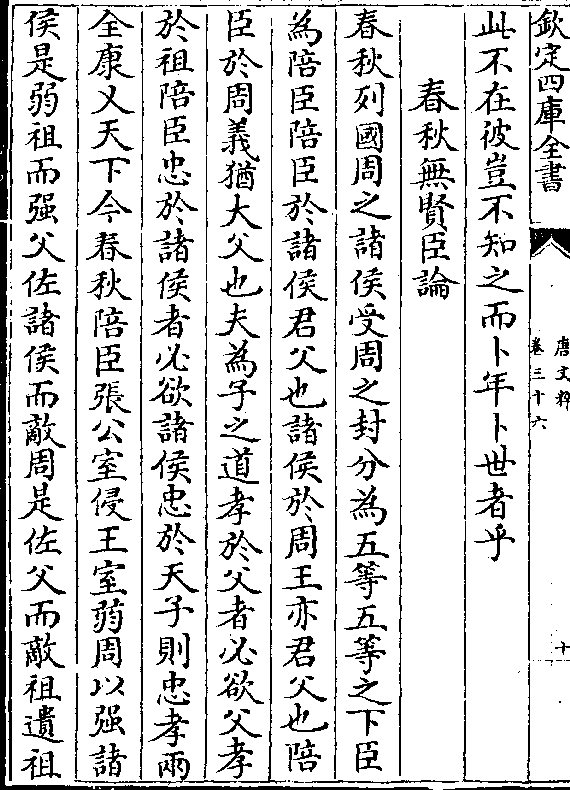 欽定四庫全書
唐文粹
卷三十六
十
此不在彼豈不知之而卜年卜世者乎
春秋無賢臣論
春秋列國周之諸侯受周之封分為五等五等之下臣
為陪臣陪臣於諸侯君父也諸侯於周王亦君父也陪
臣於周義猶大父也夫為子之道孝於父者必欲父孝
於祖陪臣忠於諸侯者必欲諸侯忠於天子則忠孝兩
全康乂天下今春秋陪臣張公室侵王室弱周以强諸
侯是弱祖而强父佐諸侯而敵周是佐父而敵祖遺祖